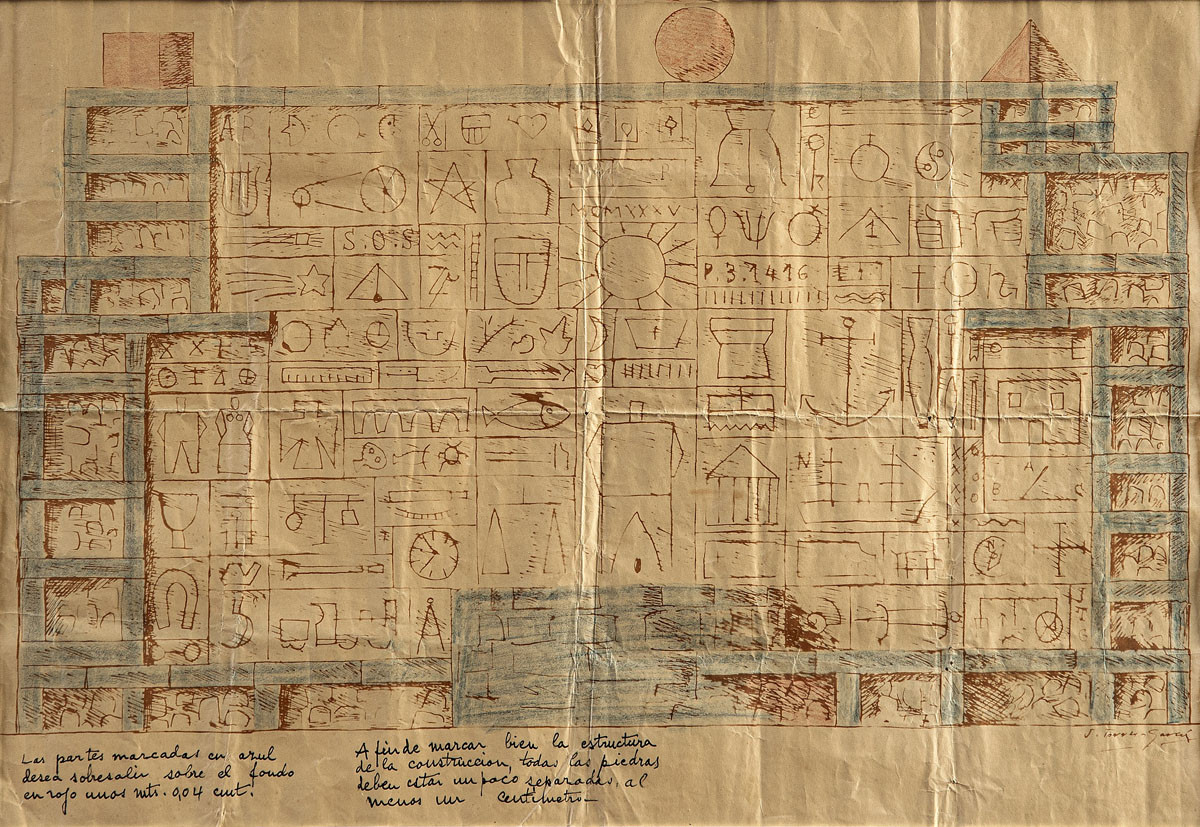 AB
MCMXXXV
S.O.S
P. 3.1416
1
N
A
B
J. Torres-García
Las partes marcadas en azul
desea sobresalir sobre el fondo
en rojo unos mts. 0,04 cmt.
A fin de marcar bien la estructura
de la construccion, todas las piedras
deben estar un poco separadas, al
menos un centimetro